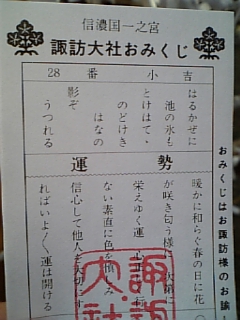 信濃国一之宮
諏訪大社おみくじ
28番 小吉
はるかぜに
池の氷も
とけはて、
のどけき
はなの
影ぞ
うつれる
運勢
暖かに和らぐ春の日に花
が咲き匂う様に
栄えゆく運
ない素直に色を慎しみ
信心して他人を大切に
ればいよ〳〵運は開ける
おみくじはお諏訪様のお諭
諏訪大社